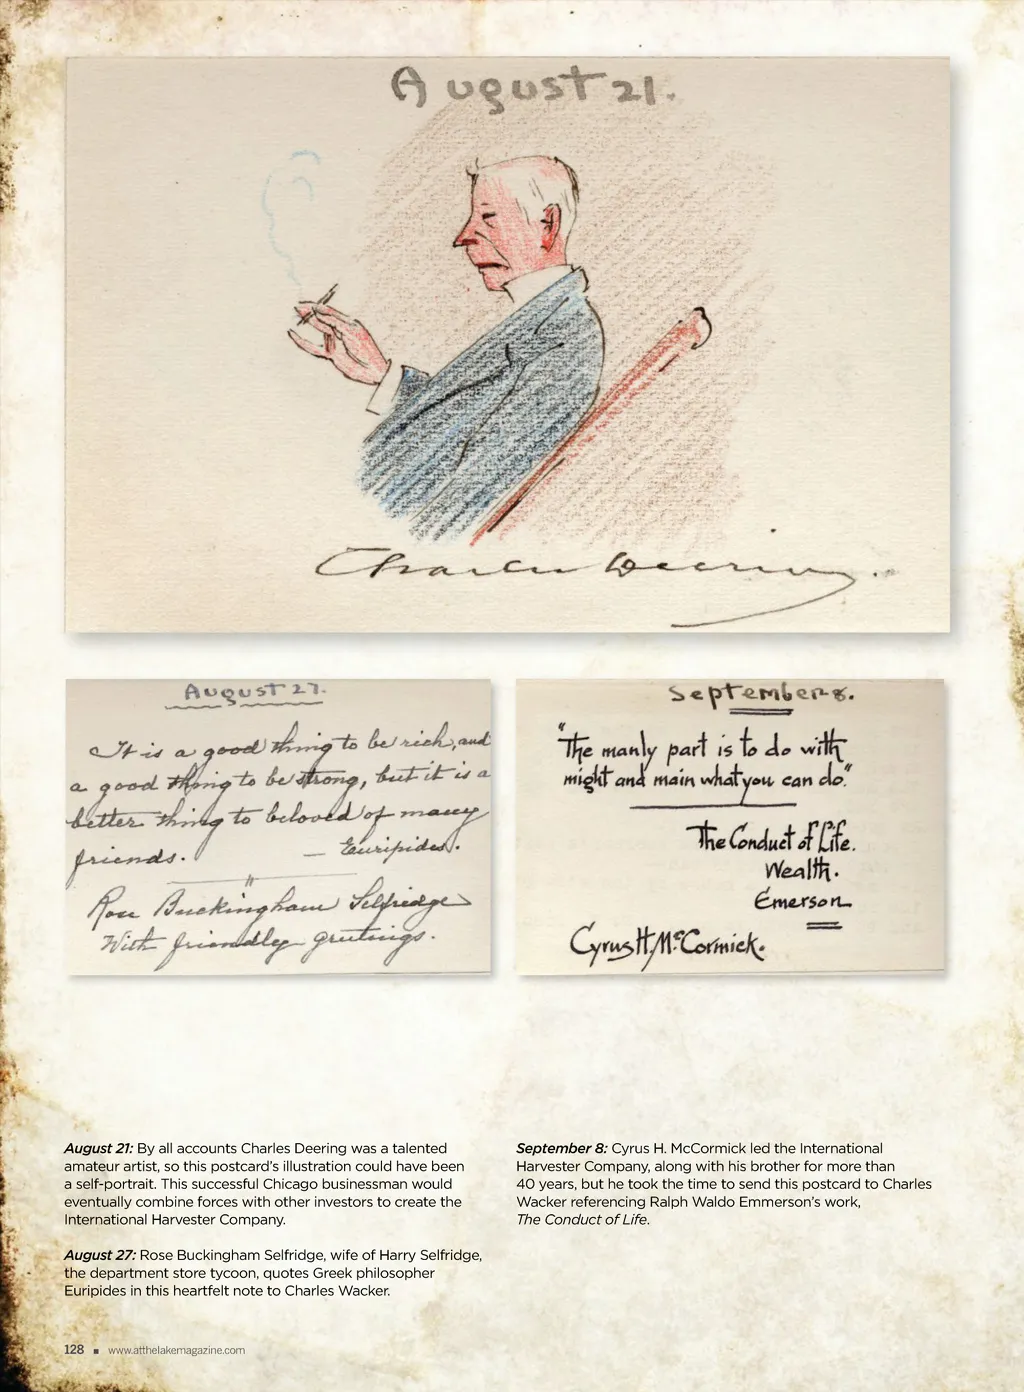 August 21.
Charles Deering.
August 27.
It is a good thing to be rich, and
a good thing to be strong, but it is a
better thing to beloved of many
friends. — Euripides.
Rose Buckingham Selfridge
With friendly greetings.
September 8.
"The manly part is to do with
might and main what you can do."
The Conduct of Life.
Wealth.
Emerson
Cyrus H. McCormick.
August 21: By all accounts Charles Deering was a talented
amateur artist, so this postcard's illustration could have been
a self-portrait. This successful Chicago businessman would
eventually combine forces with other investors to create the
International Harvester Company.
August 27: Rose Buckingham Selfridge, wife of Harry Selfridge,
the department store tycoon, quotes Greek philosopher
Euripides in this heartfelt note to Charles Wacker.
September 8: Cyrus H. McCormick led the International
Harvester Company, along with his brother for more than
40 years, but he took the time to send this postcard to Charles
Wacker referencing Ralph Waldo Emmerson's work,
The Conduct of Life.
128 ■ www.atthelakemagazine.com